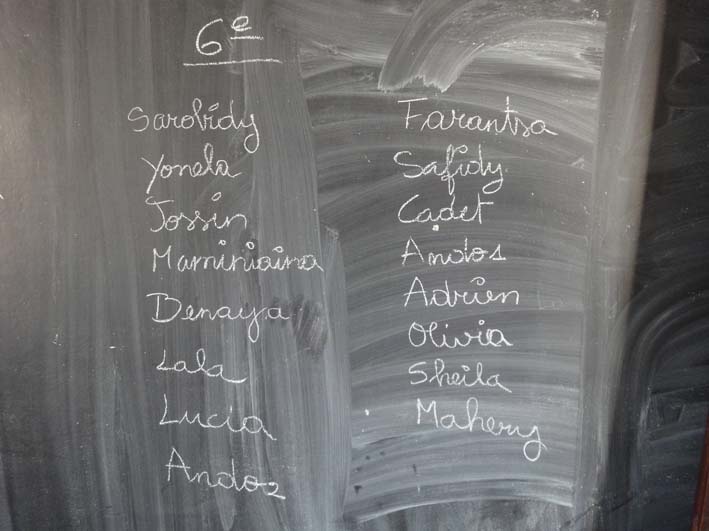 6e
Sarobidy
Yonela
Jossin
Maminiaina
Benaya
Lala
Lucia
Ando2
Farantsa
Safidy
Cadet
Ando1
Adrien
Olivia
Sheila
Mahery